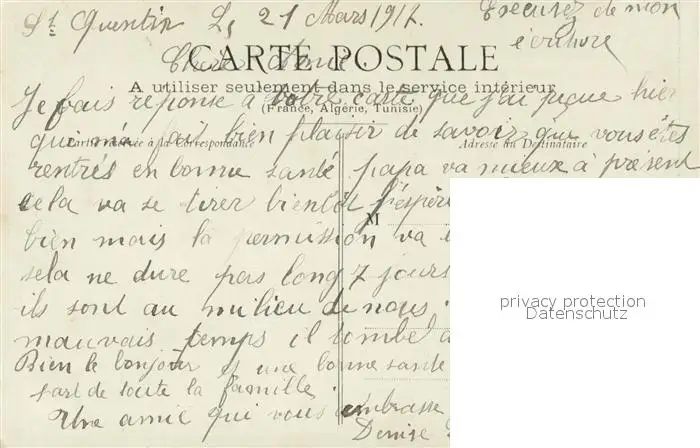 St Quentin L, 21 Mars 1917.
Excusez de mon
écriture
CARTE POSTALE
Chere Amie.
A utiliser seulement dans le service intérieur
(France, Algérie, Tunisie)
Je fais reponse à votre carte que j'ai reçue hier
qui m'a fait bien plaisir de savoir que vous êtes
Adresse du Destinataire
rentrés en bonne santé papa va mieux à présent
cela va se tirer bientôt j'espèr
M
bien mais la permission va
sela ne dure pas long 7 jours
ils sont au milieu de nous.
mauvais temps il tombe
Bien le bonjour et une bonne santé
part de toute la famille.
Une amie qui vous embrasse
Denise
privacy protection
Datenschutz